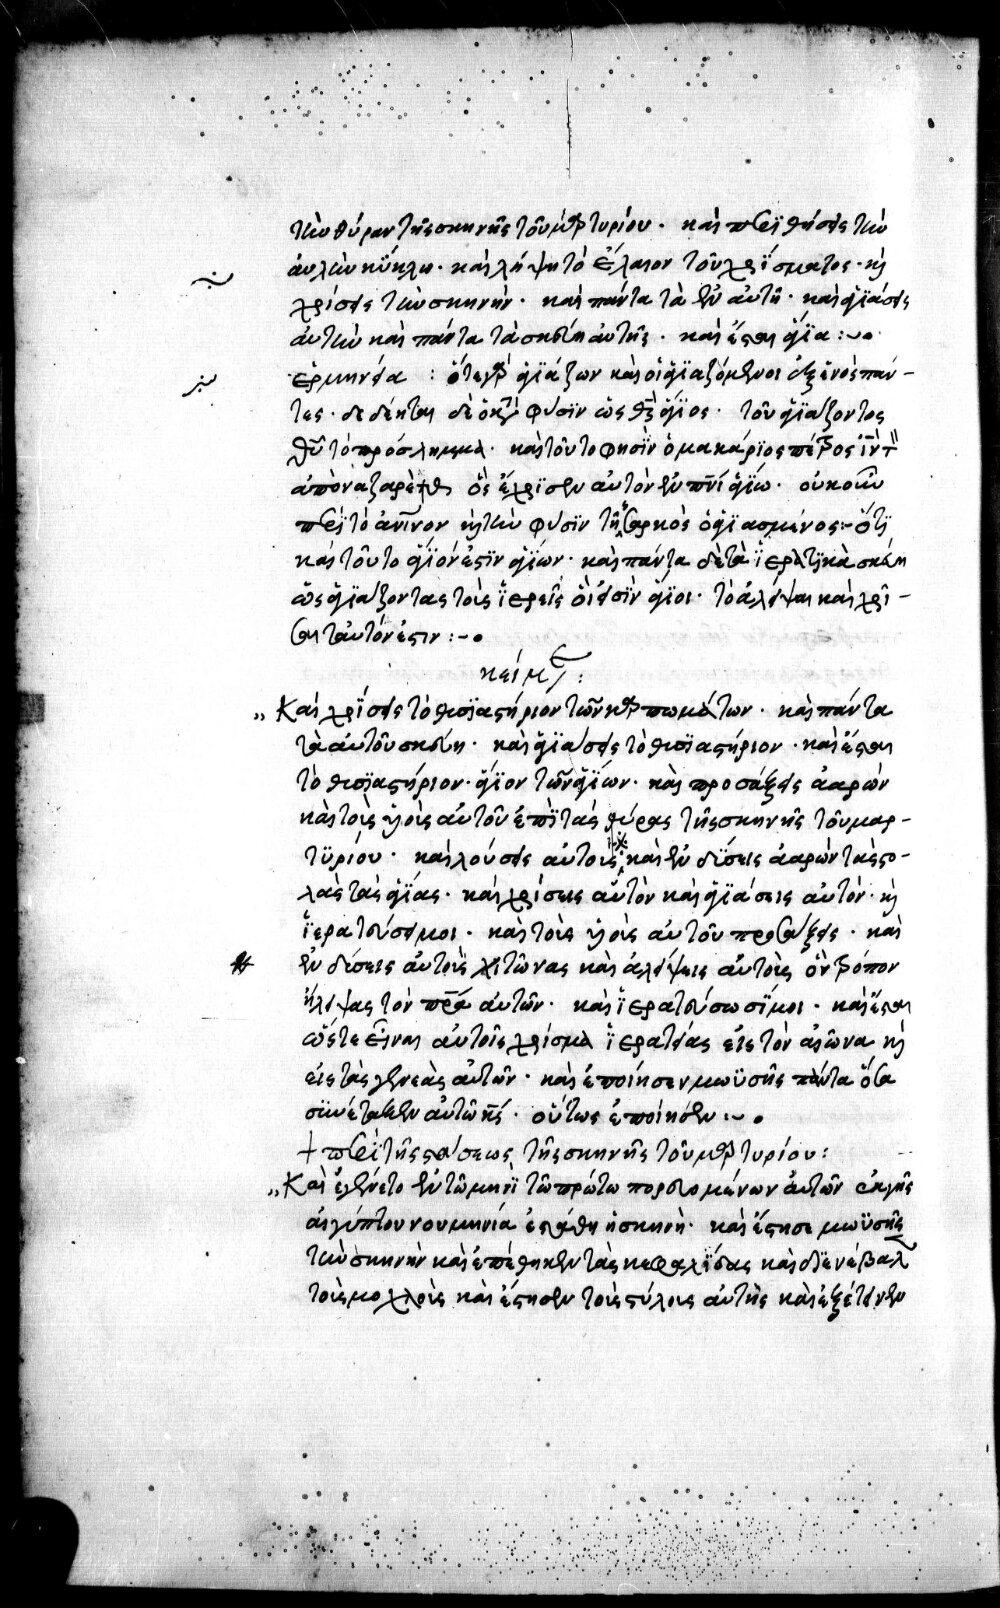 τὴν θύραν τῆς σκηνῆς τοῦ μαρτυρίου · καὶ περιθήσεις τὴν
αὐλὴν κύκλῳ · καὶ λήψῃ τὸ ἔλαιον τοῦ χρίσματος · καὶ
χρίσεις τὴν σκηνὴν · καὶ πάντα τὰ ἐν αὐτῇ · καὶ ἁγιάσεις
αὐτὴν καὶ πάντα τὰ σκεύη αὐτῆς · καὶ ἔσται ἁγία :~ ·
ἑρμηνεία : ὅτε γὰρ ἁγιάζων καὶ οἱ ἁγιαζόμενοι ἐξ ἑνὸς πάν-
τες · δέδεκται δὲ ὁ κατὰ φύσιν ὡς θς ἅγιος · τοῦ ἁγιάζοντος
θῦ τὸ πρόσλημμα · καὶ τοῦτο φησὶν ὁ μακάριος πέτρος ἰν τ
ἀπὸ ναζαρὲθ ὃς ἔχρισεν αὐτὸν ἐν πνι ἁγίω · οὐκοῦν
περὶ τὸ ἀνινον καὶ τὴν φύσιν τῆς σαρκὸς ὁ ἁγιασμένος :- ὅτι
καὶ τοῦτο ἅγιόν ἐστιν ἁγίων · καὶ πάντα δὲ τὰ ἱερατικὰ σκεύη
ὡς ἁγιάζοντας τοὺς ἱερεῖς οἵ εἰσὶν ἅγιοι · τὸ ἀλεῖψαι καὶ χρῖ-
σαι ταυτόν ἐστιν :~ ·
κείμε :
,, Καὶ χρίσεις τὸ θυσιαστήριον τῶν καρπωμάτων · καὶ πάντα
τὰ αὐτοῦ σκεύη · καὶ ἁγιάσεις τὸ θυσιαστήριον · καὶ ἔσται
τὸ θυσιαστήριον · ἅγιον τῶν ἁγίων · καὶ προσάξεις ἀαρὼν
καὶ τοὺς υἱοὺς αὐτοῦ ἐπὶ τὰς θύρας τῆς σκηνῆς τοῦ μαρ-
τυρίου · καὶ λούσεις αὐτοὺς καὶ ἐνδύσεις ἀαρὼν τὰς στο-
λὰς τὰς ἁγίας · καὶ χρίσεις αὐτὸν καὶ ἁγιάσεις αὐτὸν · καὶ
ἱερατεύσει μοι · καὶ τοὺς υἱοὺς αὐτοῦ προσάξεις · καὶ
ἐνδύσεις αὐτοὺς χιτῶνας καὶ ἀλείψεις αὐτοὺς ὃν τρόπον
ἤλειψας τὸν πρα αὐτῶν · καὶ ἱερατεύσωσί μοι · καὶ ἔσται
ὥστε εἶναι αὐτοῖς χρίσμα ἱερατείας εἰς τὸν αἰῶνα καὶ
εἰς τὰς γενεὰς αὐτῶν · καὶ ἐποίησεν μωϋσῆς πάντα ὅσα
συνέταξεν αὐτῶ κς · οὕτως ἐποίησεν :~ ·
+ περὶ τῆς στάσεως τῆς σκηνῆς τοῦ μαρτυρίου :
,, Καὶ ἐγένετο ἐν τῶ μηνὶ τῶ πρώτω πορευομένων αὐτῶν ἐκ γῆς
αἰγύπτου νουμηνία ἐστάθη ἡ σκηνὴ · καὶ ἔστησε μωϋσῆς
τὴν σκηνὴν καὶ ἐπέθηκεν τὰς κεφαλίδας καὶ διενέβαλ
τοὺς μοχλοὺς καὶ ἔστησεν τοὺς στύλους αὐτῆς καὶ ἐξέτεινεν